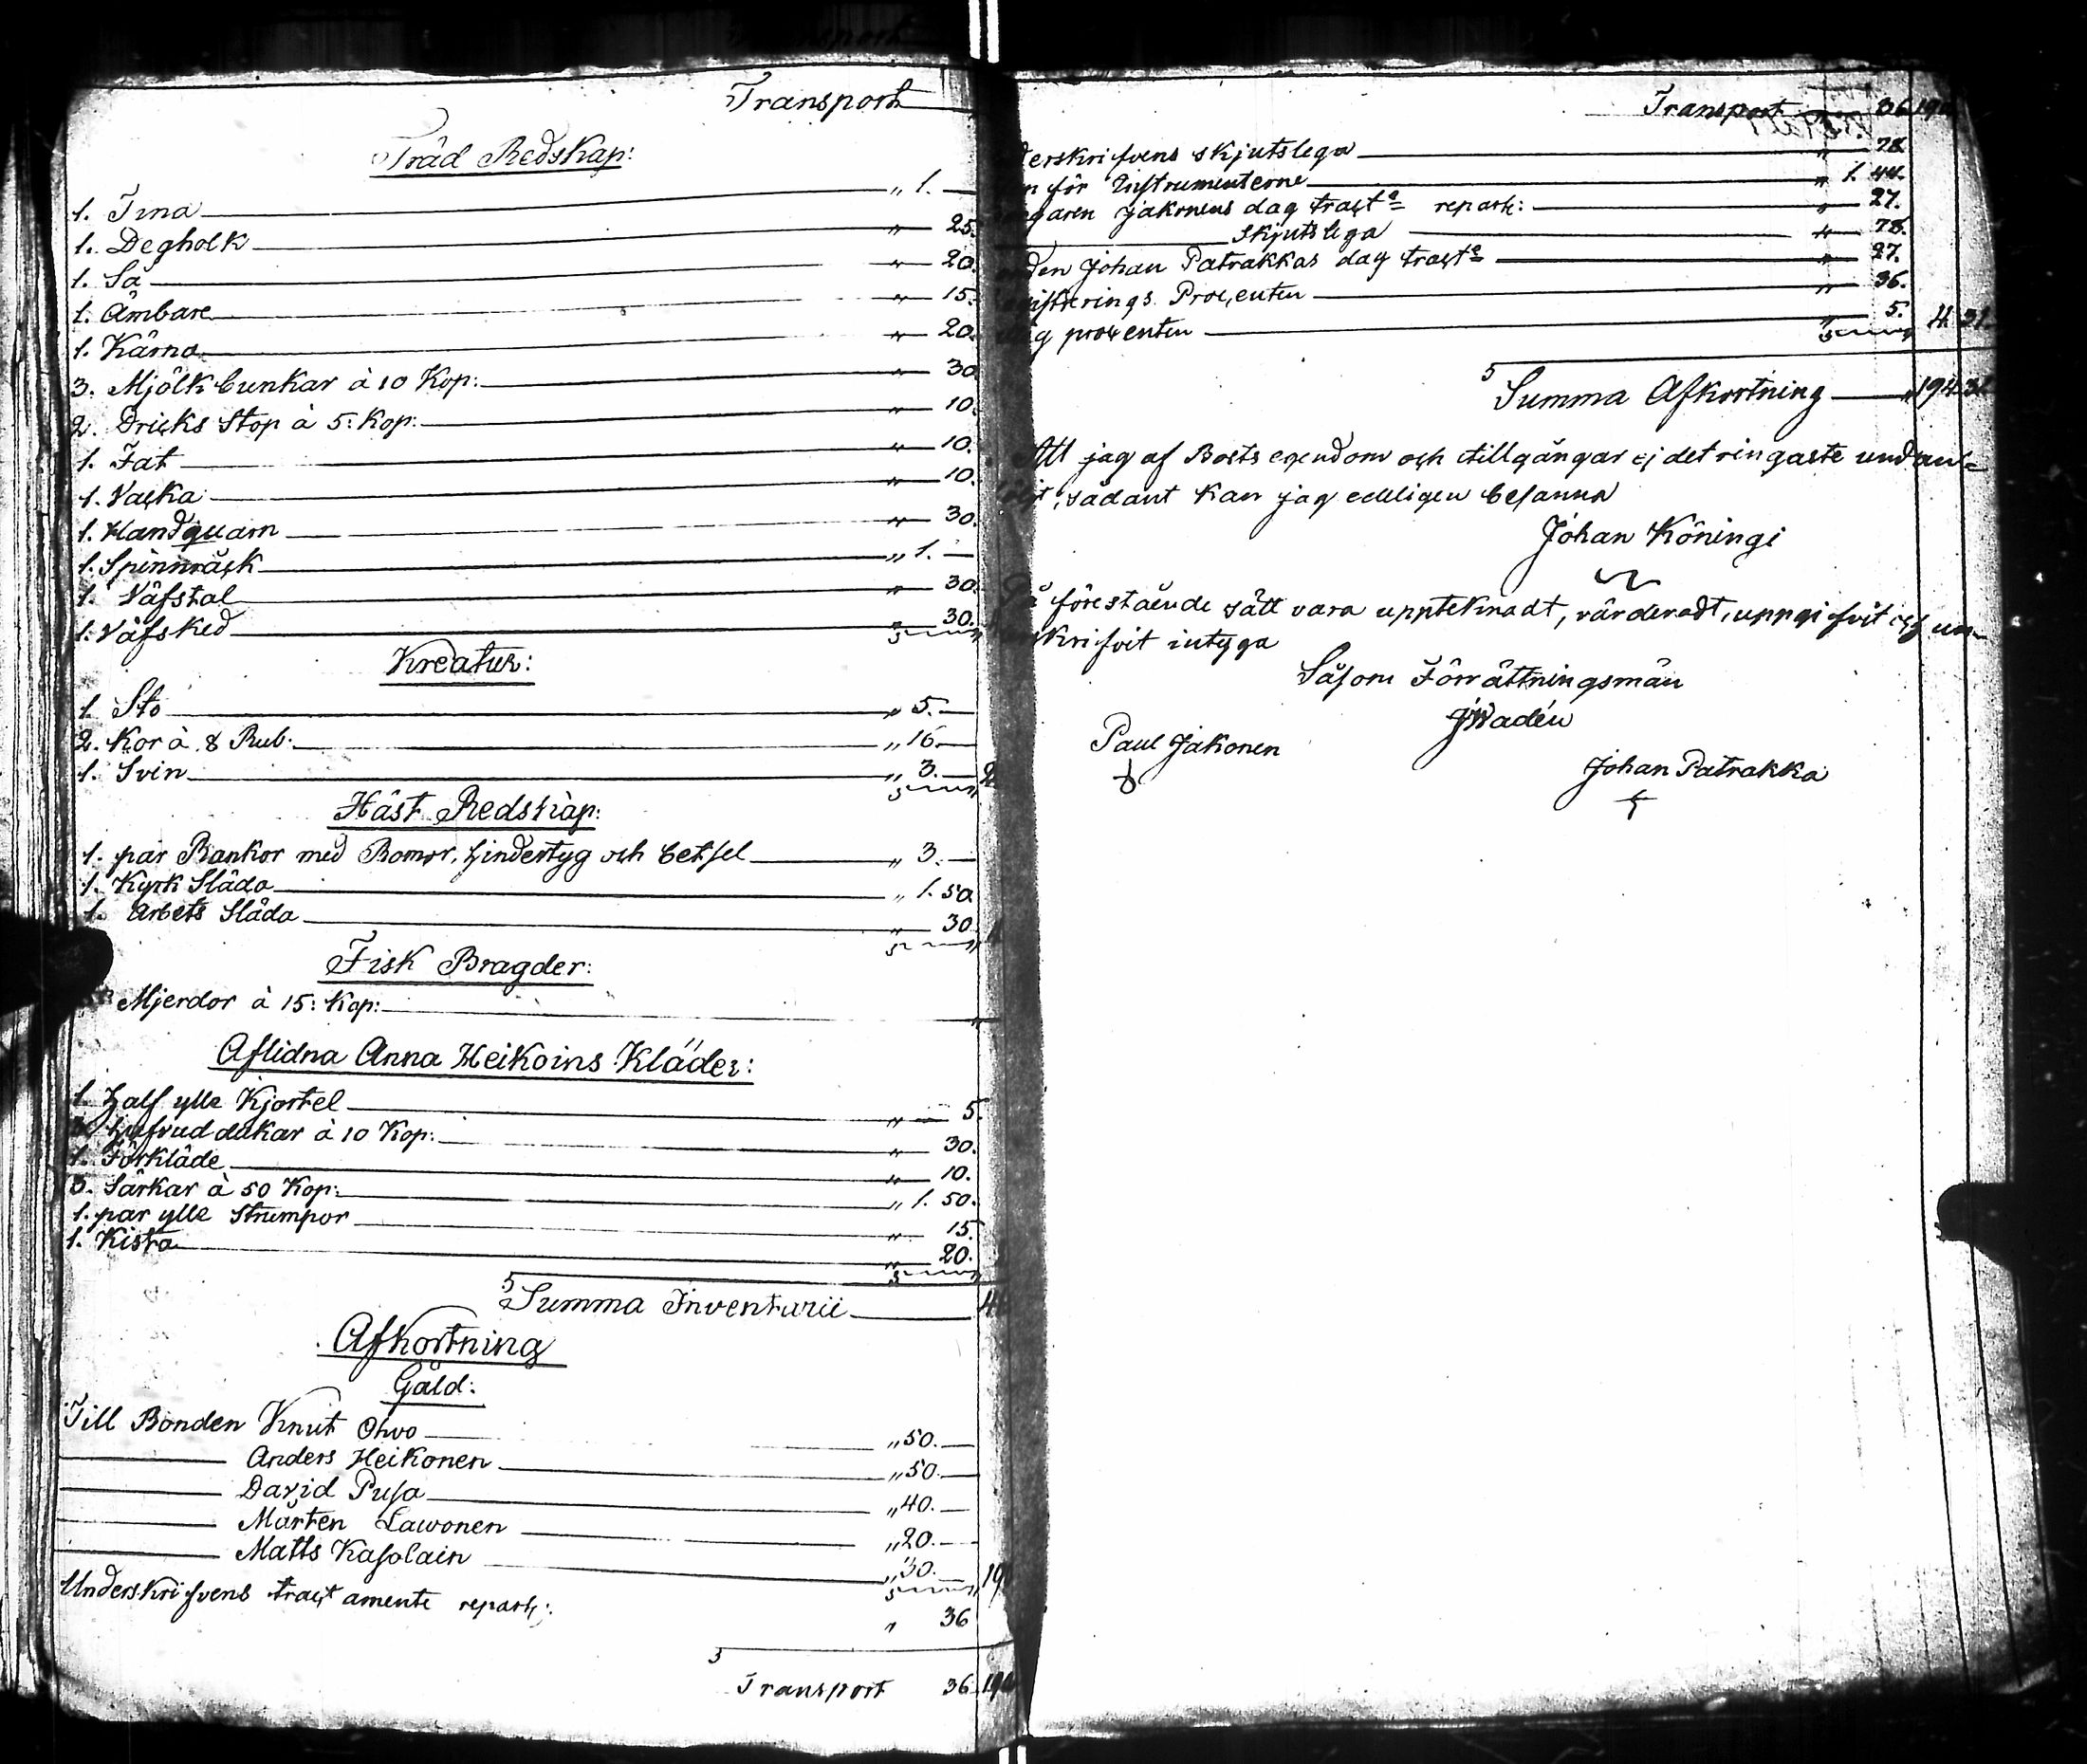 Transport
Träd Redskap:
1. Tina „ 1. —
1. Degholk „ 25.
1. Så „ 20.
1. Ämbare „ 15.
1. Kärna „ 20.
3. Mjölk bunkar à 10 Kop: „ 30
2. Dricks Stop à 5: Kop: „ 10.
1. Fat „ 10.
1. Vacka „ 10.
1. Handquarn „ 30.
1. Spinnråck „ 1. —
1. Väfstol „ 30.
1. Väfsked 30.
Kreatur:
1. Sto „ 5. —
2. Kor à 8 Rub. „ 16. —
1. Svin „ 3. —
Häst Redskap:
1. par Rankor med Bomor, hindertyg och betsel „ 3. —
1. Kyrk Släda „ 1. 50
1. Arbets Släda „ 30
Fisk Bragder:
Mjerdor à 15: Kop: „
Aflidna Anna Heikoins Kläder:
1. Half ylle Kjortel „ 5.
3. hufvud dukar à 10 Kop: „ 30.
1. Förkläde „ 10.
3. Särkar à 50 Kop: „ 1. 50.
1. par ylle strumpor „ 15.
1. Kista „ 20.
Summa Inventarii
Afkortning
Gäld:
Till Bonden Knut Ohvo „ 50. —
Anders Heikonen „ 50. —
David Pusa „ 40. —
Mårten Lawonen „ 20. —
Matts Kasolain „ 30. — 19
Underskrifvens tractamente repart: „ 36
Transport 36. 190
Transport „ 36. 190
derskrifvens skjutslega „ 78.
n för Instrumenterne „ 1. 44.
garen Jakonens dag tract: repart: „ 27.
Skjutslega „ 78.
den Johan Patrakkas dag tract: „ 27.
istrerings Procenten „ 36.
g procenten „ 5. 4 31.
Summa Afkortning „ 194 31
Att jag af Boets egendom och tillgångar ej det ringaste undan-
, sådant kan jag edeligen besanna
Johan Köningi
På förestående sätt vara uppteknadt, värderadt, uppgifvit och un-
skrifvit intyga
Såsom Förrättningsmän
JWadén
Paul Jakonen
Johan Patrakka